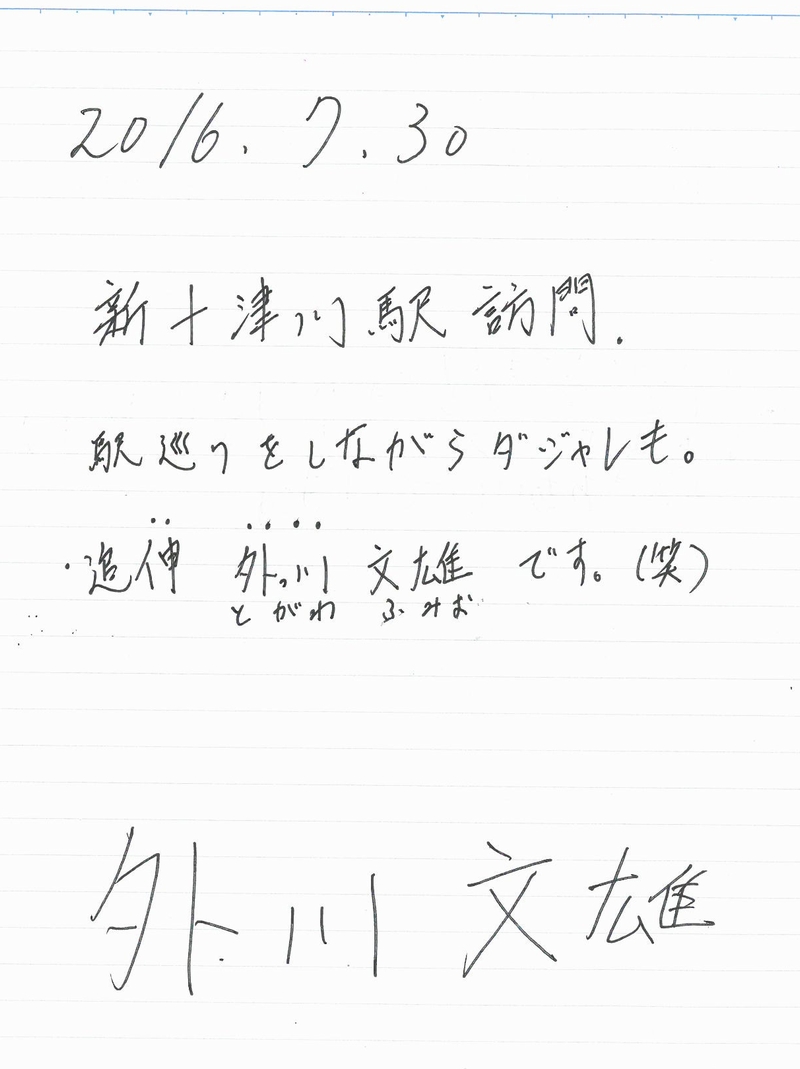 2016.7.30
新十津川駅 訪問.
駅巡りをしながらダジャレも。
・追伸 外川 文雄 です。(笑)
とがわ ふみお
外川 文雄